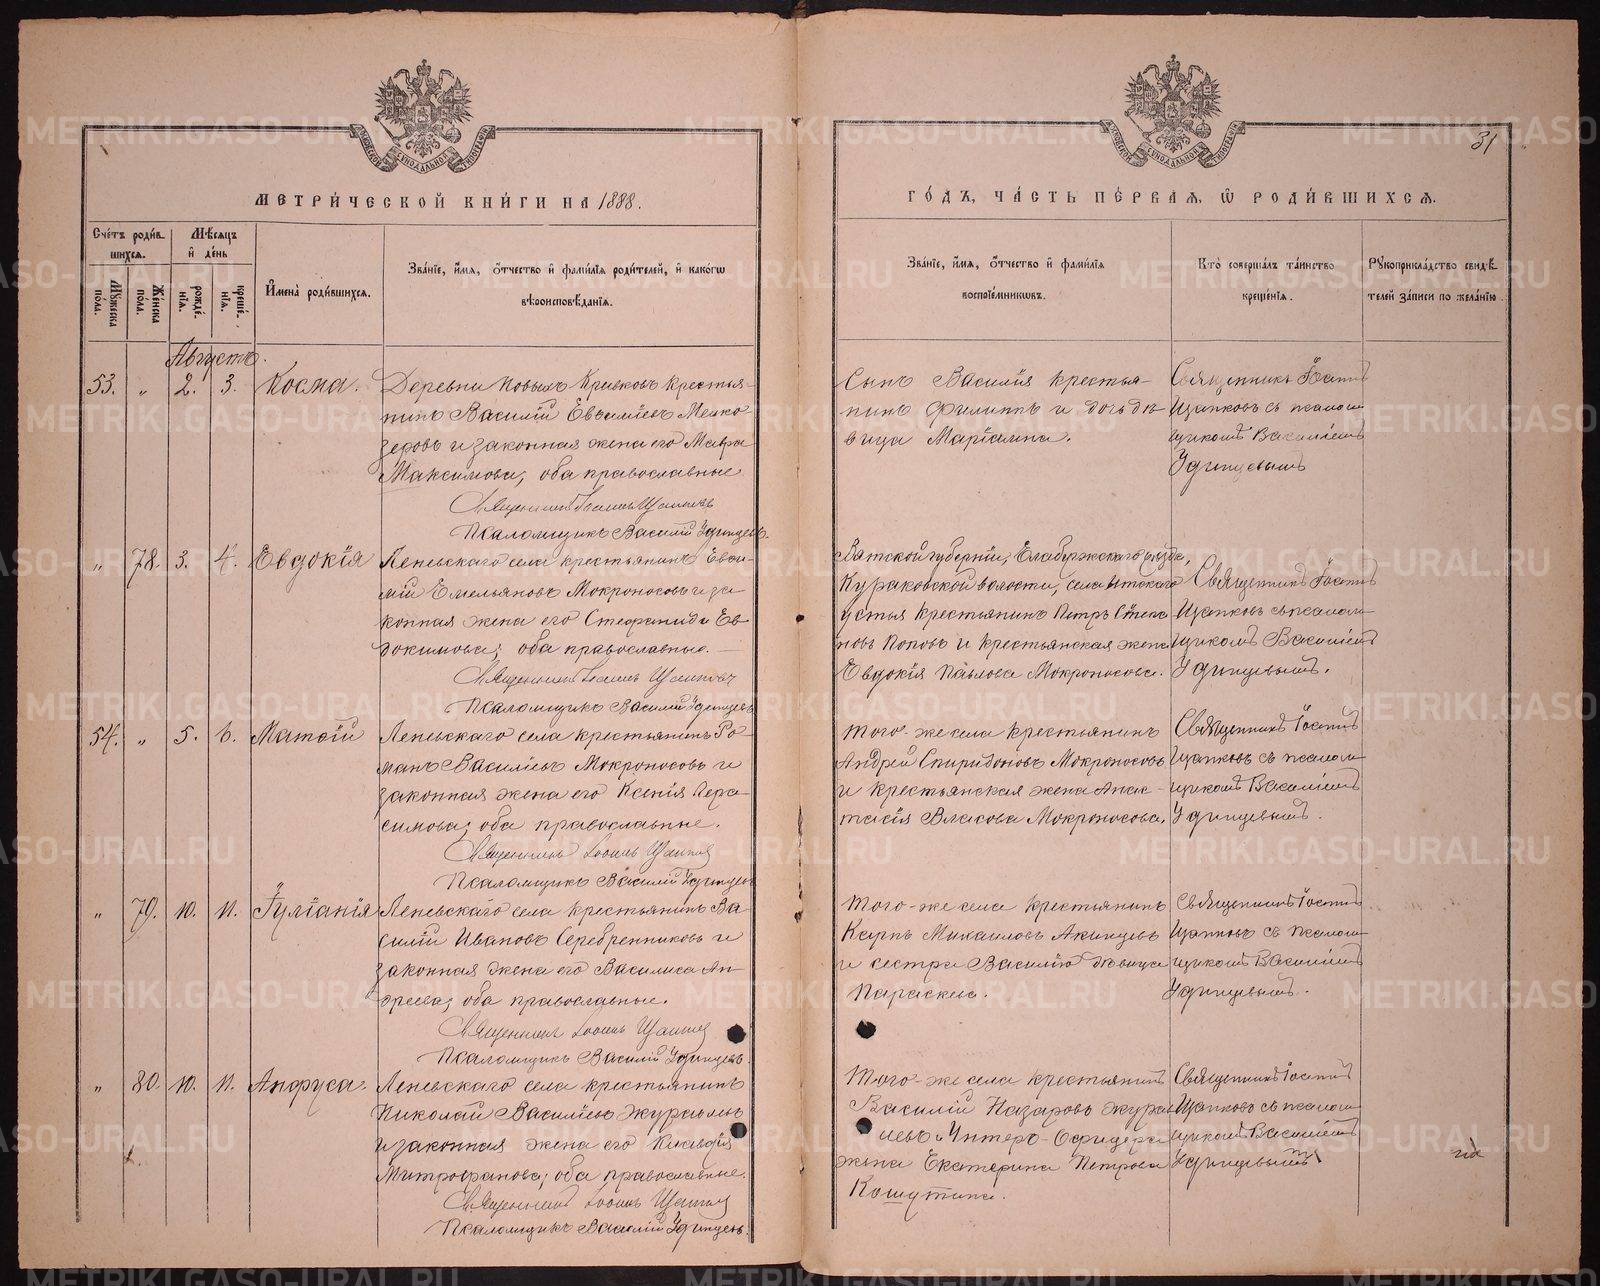 31
МЕТРИ́ЧЕСКОЙ КНИ́ГИ НА 1888.
ГО́ДЪ, ЧА́СТЬ ПЕ́РВАЯ, Ѡ РОДИ́ВШИХСѦ.
Сче́тъ роди́в
шихсѧ.
Мѣ́сѧцъ
и҆ де́нь
Мꙋжеска
по́ла.
Же́нска
по́ла.
рожде́
нїѧ.
креще́
нїѧ.
И҆мена̀ роди́вшихсѧ.
Зва́нїе, и҆́мѧ, ѻ҆́тчество и҆ фами́лїѧ роди́телей, и҆ како́гѡ
вѣроисповѣ́данїѧ.
Зва́нїе, и҆́мѧ, ѻ҆́тчество и҆ фами́лїѧ
воспрїе́мникѡвъ.
Кто̀ соверша́лъ та́инство
креще́нїѧ.
Рꙋкоприкла́дство свидѣ́
телей за́писи по жела́нїю.
Августъ.
53. „ 2. 3. Косма.
Деревни Новыхъ Кривковъ крестья-
нинъ Василій Евѳиміевъ Мелко-
зеровъ и законная жена его Мавра
Максимова, оба православные
Священникъ Іоаннъ Щапковъ
Псаломщикъ Василій Удинцевъ.
Сынъ Василія крестья-
нинъ Филиппъ и дочь дѣ-
вица Маріамна.
Священникъ Іоаннъ
Щапковъ съ псалом-
щикомъ Василіемъ
Удинцевымъ
„ 78. 3. 4. Евдокія
Леневскаго села крестьянинъ Евѳи-
мій Емельяновъ Мокроносовъ и за-
конная жена его Стефанида Ев-
докимова; оба православные.
Священникъ Іоаннъ Щапковъ
Псаломщикъ Василій Удинцевъ
Вятской губерніи, Елабужскаго уѣзда,
Кураковской волости, села
устья крестьянинъ Петръ Степа
новъ Поповъ и крестьянская жена
Евдокія Павлова Мокроносова.
Священникъ Іоаннъ
Щапковъ съ псалом-
щикомъ Василіемъ
Удинцевымъ.
54. „ 5. 6. Матѳій
Леневскаго села крестьянинъ Ро-
манъ Василіевъ Мокроносовъ и
законная жена его Ксенія Гера-
симова; оба православные.
Священникъ Іоаннъ Щапковъ
Псаломщикъ Василій Удинцевъ
Того-же села крестьянинъ
Андрей Спиридоновъ Мокроносовъ
и крестьянская жена Анас-
тасія Власова Мокроносова.
Священникъ Іоаннъ
Щапковъ съ псалом-
щикомъ Василіемъ
Удинцевымъ.
„ 79. 10. 11. Іуліанія
Леневскаго села крестьянинъ Ва-
силій Ивановъ Серебренниковъ и
законная жена его Василиса Ан-
дреева; оба православные.
Священникъ Іоаннъ Щапковъ
Псаломщикъ Василій Удинцевъ.
Того-же села крестьянинъ
Карпъ Михаиловъ Акинцевъ
и сестра Василію дѣвица
Параскева.
Священникъ Іоаннъ
Щапковъ съ псалом-
щикомъ Василіемъ
Удинцевымъ.
„ 80. 10. 11. Анфуса.
Леневскаго села крестьянинъ
Николай Василіевъ Журавлевъ
и законная жена его Клавдія
Митрофанова; оба православные.
Священникъ Іоаннъ Щапковъ
Псаломщикъ Василій Удинцевъ.
Того-же села крестьянинъ
Василій Назаровъ Журав
левъ и Унтеръ-Офицера
жена Екатерина Петрова
Кошутина.
Священникъ Іоаннъ
Щапковъ съ псалом-
щикомъ Василіемъ
Удинцевымъ
METRIKI.GASO-URAL.RU